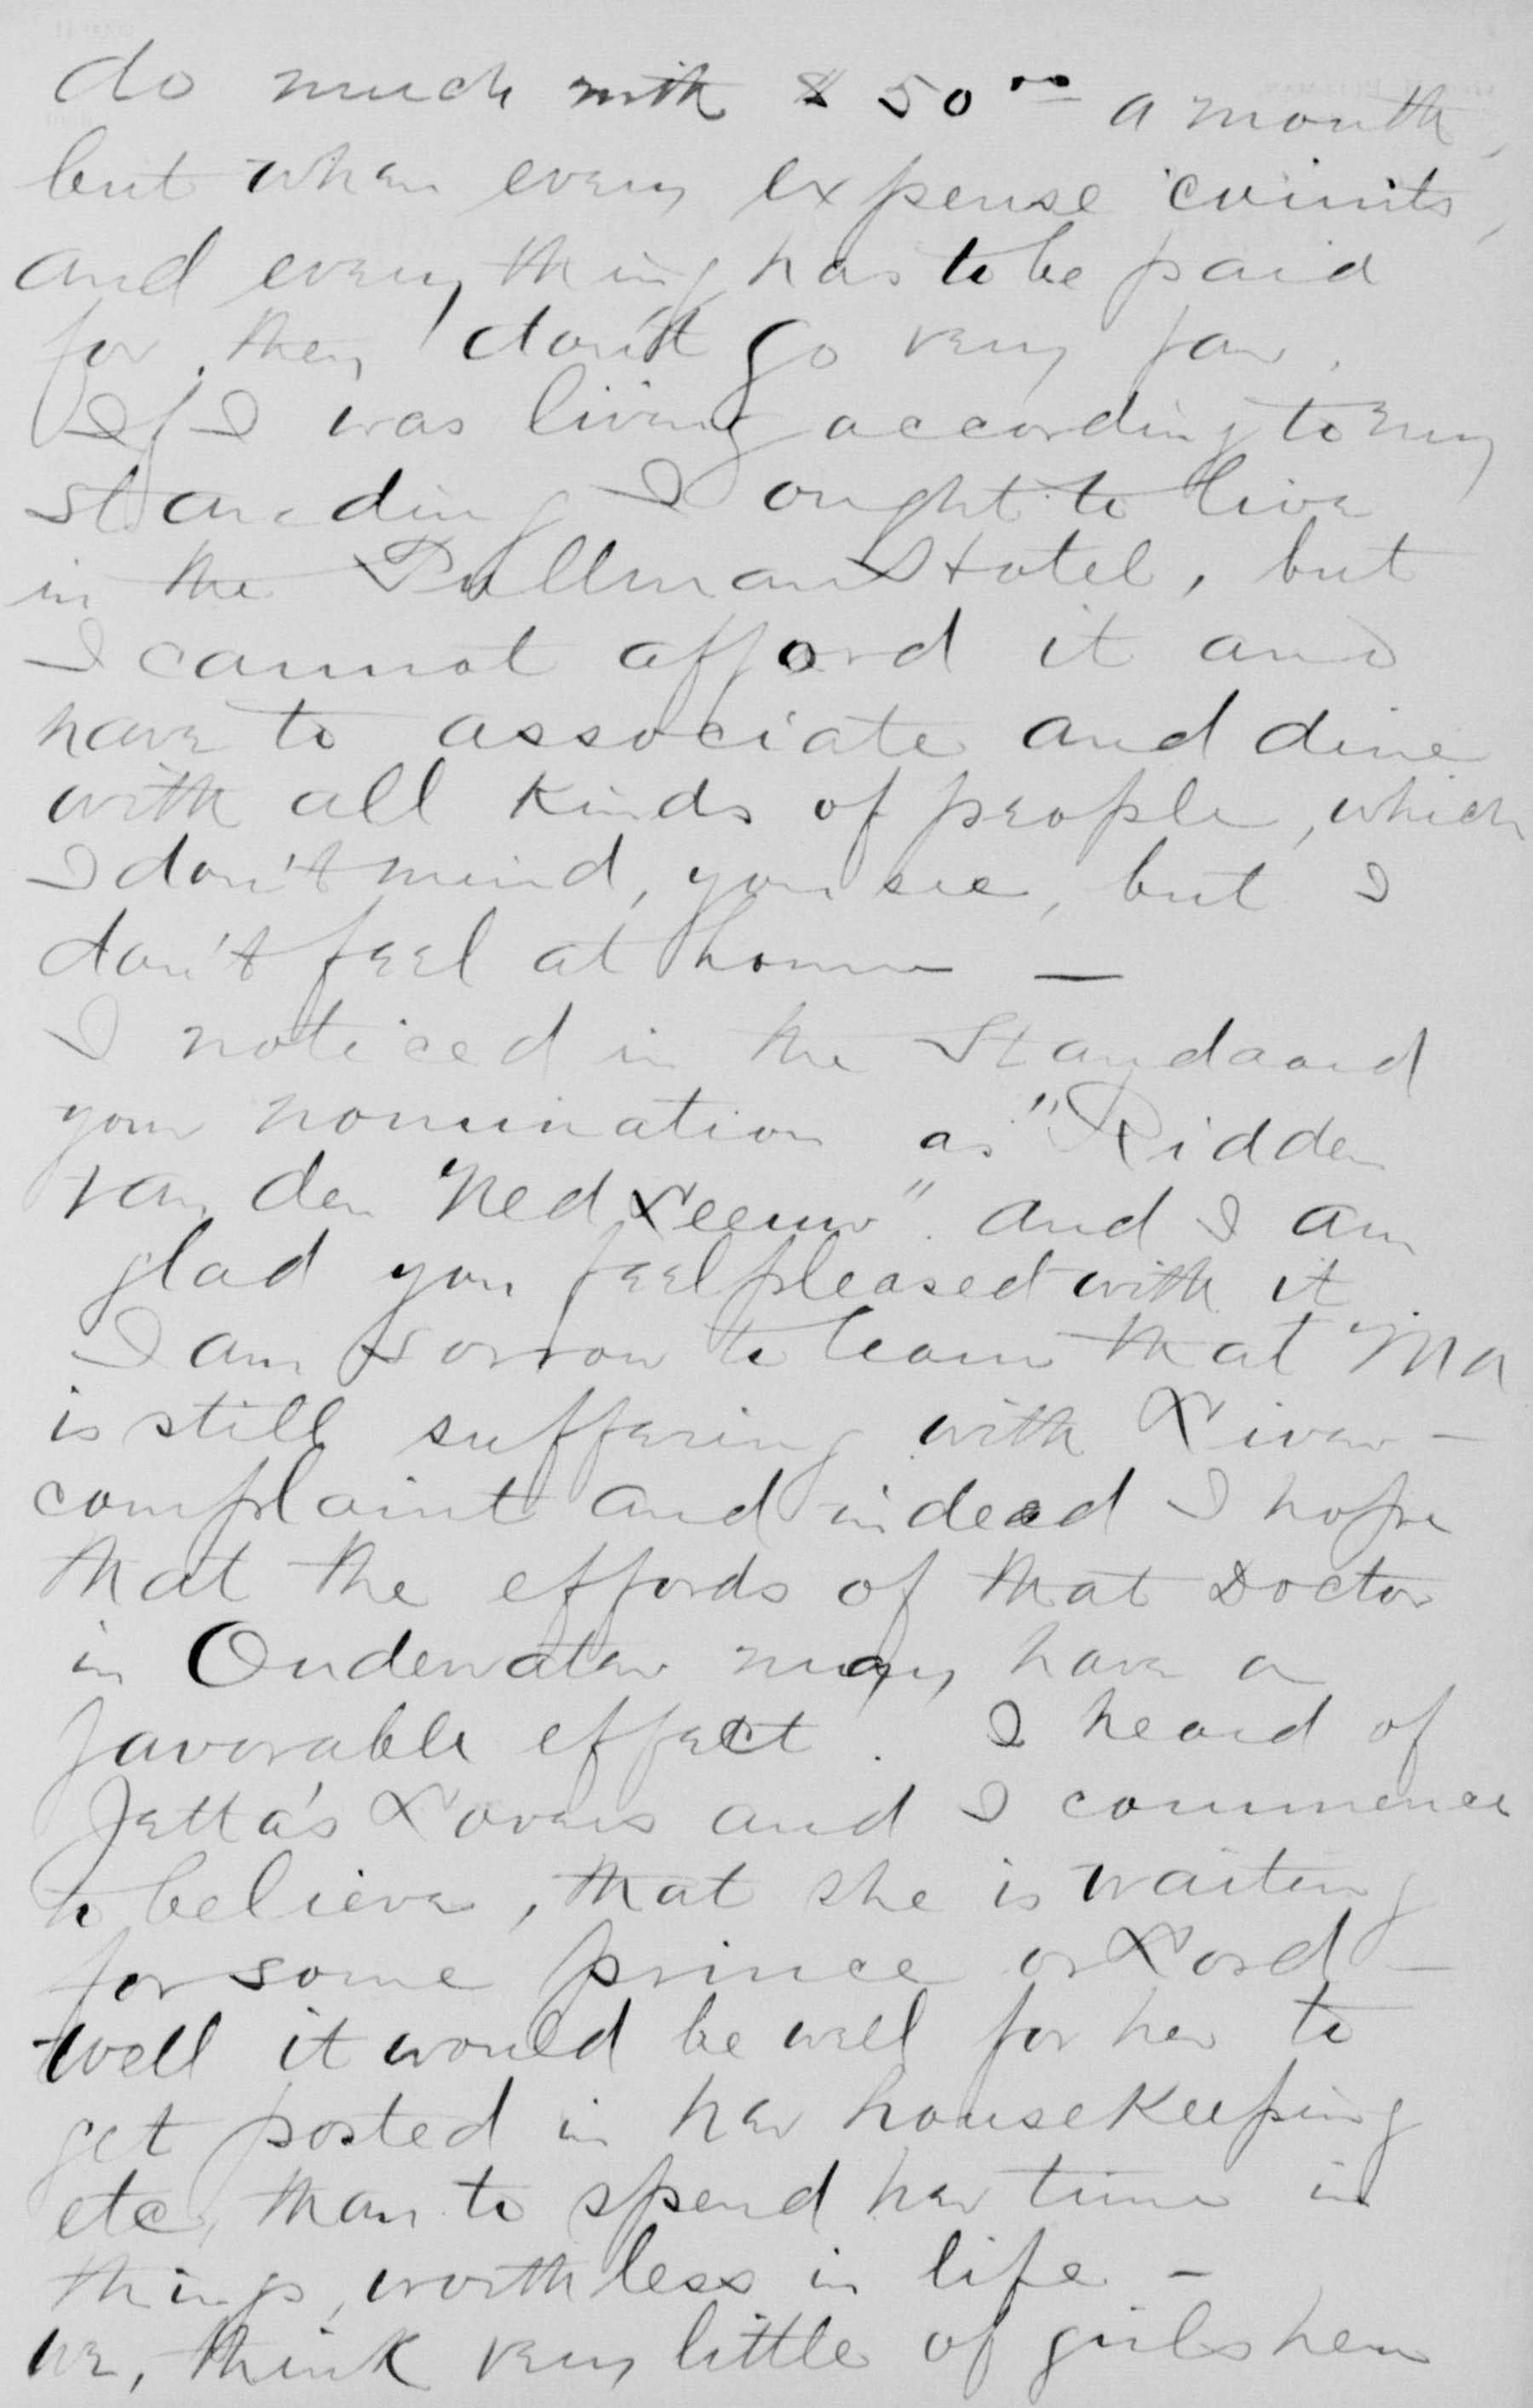 do much with $50.00 a month,
but when every expense counts,
and every thing has to be paid
for, they don't go very far.
If I was living according to my
standing I ought to live
in the Pullman Hotel, but
I cannot afford it and
have to associate and dine
with all kinds of people, which
I don't mind, you see, but I
don't feel at home —
I noticed in the Standaard
your nomination as "Ridder
van den Ned Leeuw". and I am
glad you feel pleased with it
I am sorrow to learn that Ma
is still suffering with Liver-
complaint and indeed I hope
that the effords of that Doctor
in Oudewater may have a
favorable effect. I heard of
Jetta's Lovers and I commence
to believe, that she is waiting
for some prince or Lord —
well it would be well for her to
get posted in her housekeeping
etc, than to spend her time in
things, worthless in life -
we, think very little of girls here